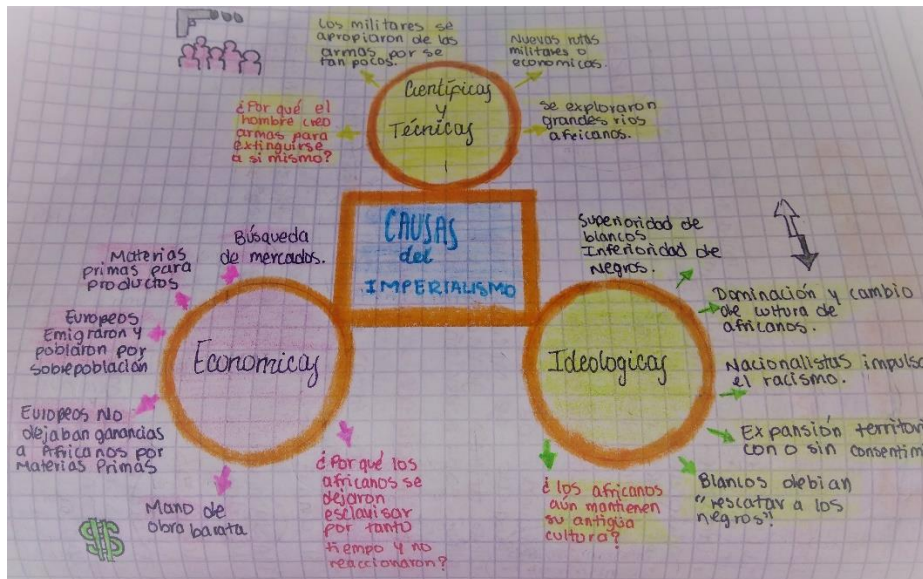 Los militares se
apropiaron de las
armas por se
tan pocos.
Nuevas rutas
militares o
economicas.
Científicas
y
Técnicas
¿Por qué el
hombre creo
armas para
extinguirse
a si mismo?
se exploraron
grandes rios
africanos.
CAUSAS
del
IMPERIALISMO
Búsqueda
de mercados.
Materias
primas para
productos
Europeos
Emigraron y
poblaron por
sobrepoblación
Economicas
Europeos No
dejaban ganancias
a Africanos por
Materias Primas
Mano de
obra barata
¿Por qué los
africanos se
dejaron
esclavisar
por tanto
tiempo y no
reaccionaron?
$$
Superioridad de
blancos
Inferioridad de
Negros.
Dominación y cambio
de cultura de
africanos.
Ideologicas
Nacionalistas impulsa
el racismo.
Expansión territori
con o sin consentim
Blancos debian
"rescatar a los
negros".
¿los africanos
aún mantienen
su antigüa
cultura?